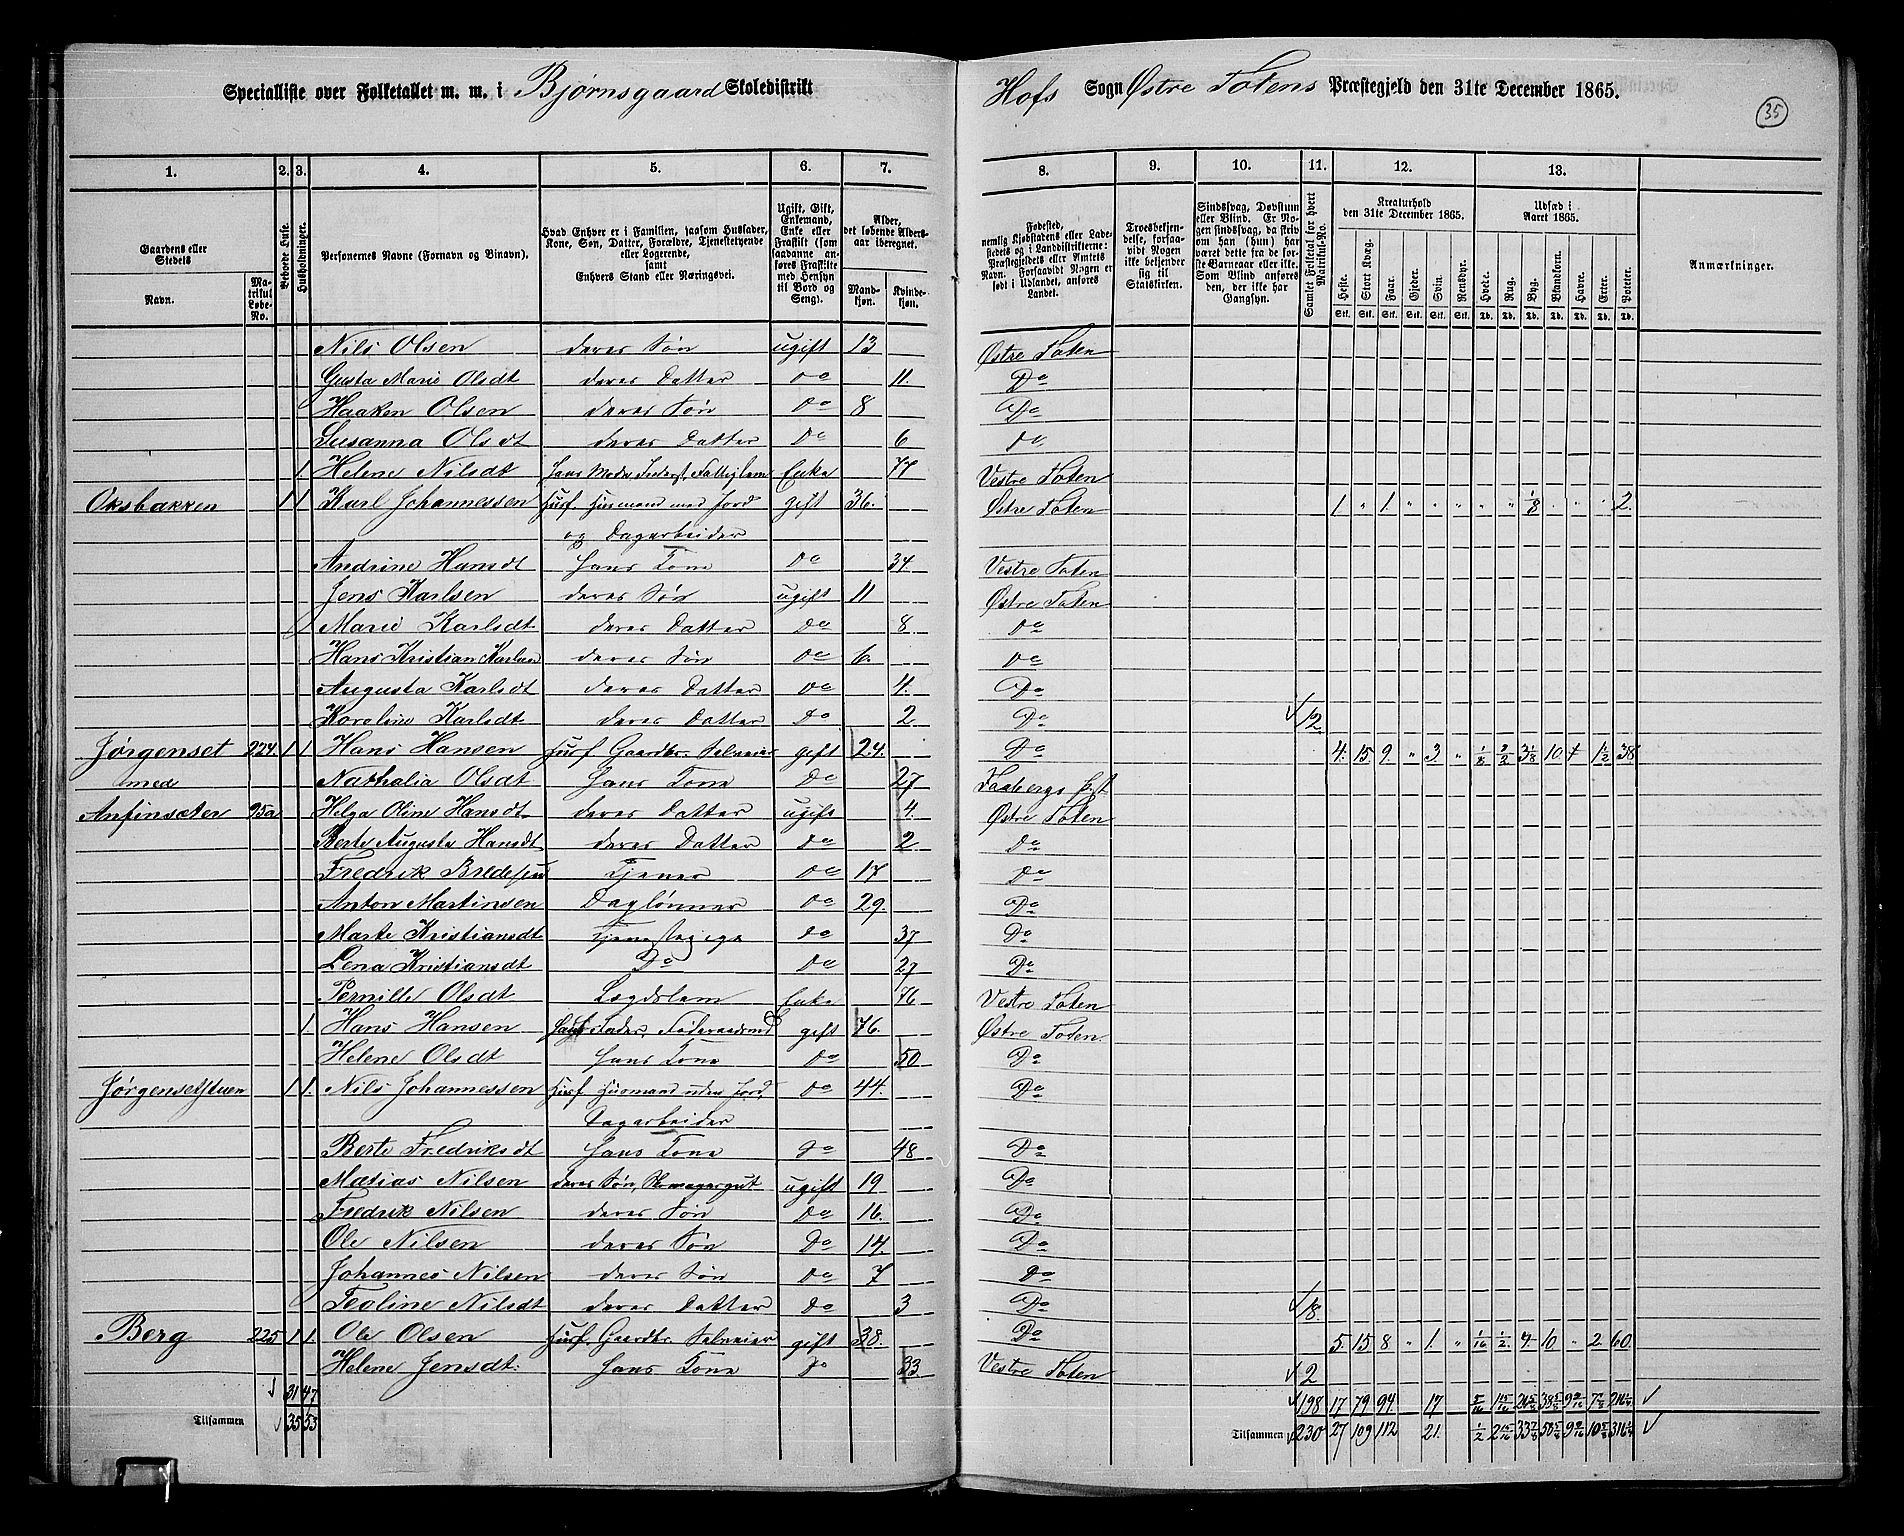 Specialliste over Folketallet m. m. i Bjørnsgaard Skoledistrikt
Hofs Sogn Østre Totens Præstegjeld den 31te December 1865.
35
1. 2. 3. 4. 5. 6. 7. 8. 9. 10. 11. 12. 13.
Gaardens eller Stedets
Navn.
Matrikul Løbe-No.
Beboede Huse.
Husholdninger.
Personernes Navne (Fornavn og Binavn).
Hvad Enhver er i Familien, saasom Husfader, Kone, Søn, Datter, Forældre, Tjenestetyende eller Logerende, samt Enhvers Stand eller Næringsvei.
Ugift, Gift, Enkemand, Enke eller Fraskilt (som saadanne anføres Fraskilte med Hensyn til Bord og Seng).
Alder, det løbende Aldersaar iberegnet.
Mandkjøn. Kvindekjøn.
Fødested, nemlig Kjøbstadens eller Ladestedets og i Landdistrikterne: Præstegjeldets eller Amtets Navn. Forsaavidt Nogen er født i Udlandet, anføres Landet.
Troesbekjendelse, forsaavidt Nogen ikke bekjender sig til Statskirken.
Sindssvag, Døvstum eller Blind. Er Nogen sindssvag, da skriv om han (hun) har været dette fra de første Barneaar eller ikke. Som Blind anføres den, der ikke har Gangsyn.
Samlet Folketal for hvert Matrikul-No.
Kreaturhold den 31te December 1865.
Heste. Stort Kvæg. Faar. Gjeder. Svin. Rensdyr.
Stk. Stk. Stk. Stk. Stk. Stk.
Udsæd i Aaret 1865.
Hvede. Rug. Byg. Blandkorn. Havre. Erter. Poteter.
Td. Td. Td. Td. Td. Td. Td.
Anmærkninger.
Nils Olsen deres Søn ugift 13 Østre Toten
Gusta Marie Olsdt deres Datter do 11. Do
Haaken Olsen deres Søn Do 8 Do
Susanna Olsdt deres Datter Do 6 Do
1. Helene Nilsdt hans Moder Inderst, Fattiglem Enke 77 Vestre Toten
Oksbakken 1 1 Karl Johannessen Husf. Husmand med Jord gift 36. Østre Toten 1. " 1. " " " " " 1/8 " " 2.
og Dagarbeider
Andrine Hansdt hans Kone Do 34. Vestre Toten
Jens Karlsen deres Søn ugift 11 Østre Toten
Marie Karlsdt. deres Datter Do 8. Do
Hans Kristian Karlsen deres Søn Do 6. Do
Augusta Karlsdt deres Datter Do 4. Do
Karoline Karlsdt deres Datter Do 2. Do 12.
Jørgenset 224. 1. 1. Hans Hansen Husf. Gaardbr. Selveier gift 24. Do 4. 15. 9. " 3. " 1/8 2/2 3 1/8 10. 4 1 1/2 38
med Nathalia Olsdt hans Kone Do 27 Faabergs Pst.
Anfinsæter 95a Helga Oline Hansdt. deres Datter ugift 4. Østre Toten
Berte Augusta Hansdt deres Datter Do 2. Do
Fredrik Bredesen Tjener Do 17 Do
Anton Martinsen Daglønner Do 29. Do
Marte Kristiansdt Tjenestepige Do 37 Do
Lena Kristiansdt Do Do 27 Do
Pernille Olsdt Legdslem Enke 76 Vestre Toten
1. Hans Hansen Husf. Fader, Føderaadsmd gift 76. Østre Toten
Helene Olsdt hans Kone Do 50 Do
Jørgensetstuen 1 1. Nils Johannessen Husf. Husmand uden Jord, Do 44. Do
Dagarbeider
Berte Fredriksdt hans Kone Do 48 Do
Matias Nilsen deres Søn, Skomagergut ugift 19 Do
Fredrik Nilsen deres Søn Do 16. Do
Ole Nilsen deres Søn Do 14. Do
Johannes Nilsen deres Søn Do 7 Do
Teoline Nilsdt deres Datter Do 3 Do 18.
Berg 225 1 1. Ole Olsen Husf. Gaardbr. Selveier gift 38. Do 5. 15 8 " 1. " 1/16 1/2 4. 10 " 2. 60.
Helene Jensdt. hans Kone Do 33 Vestre Toten 2
31 47 198 17 79 94. 17
Tilsammen 35 53 Tilsammen 230 27 109 112 21. 1/2